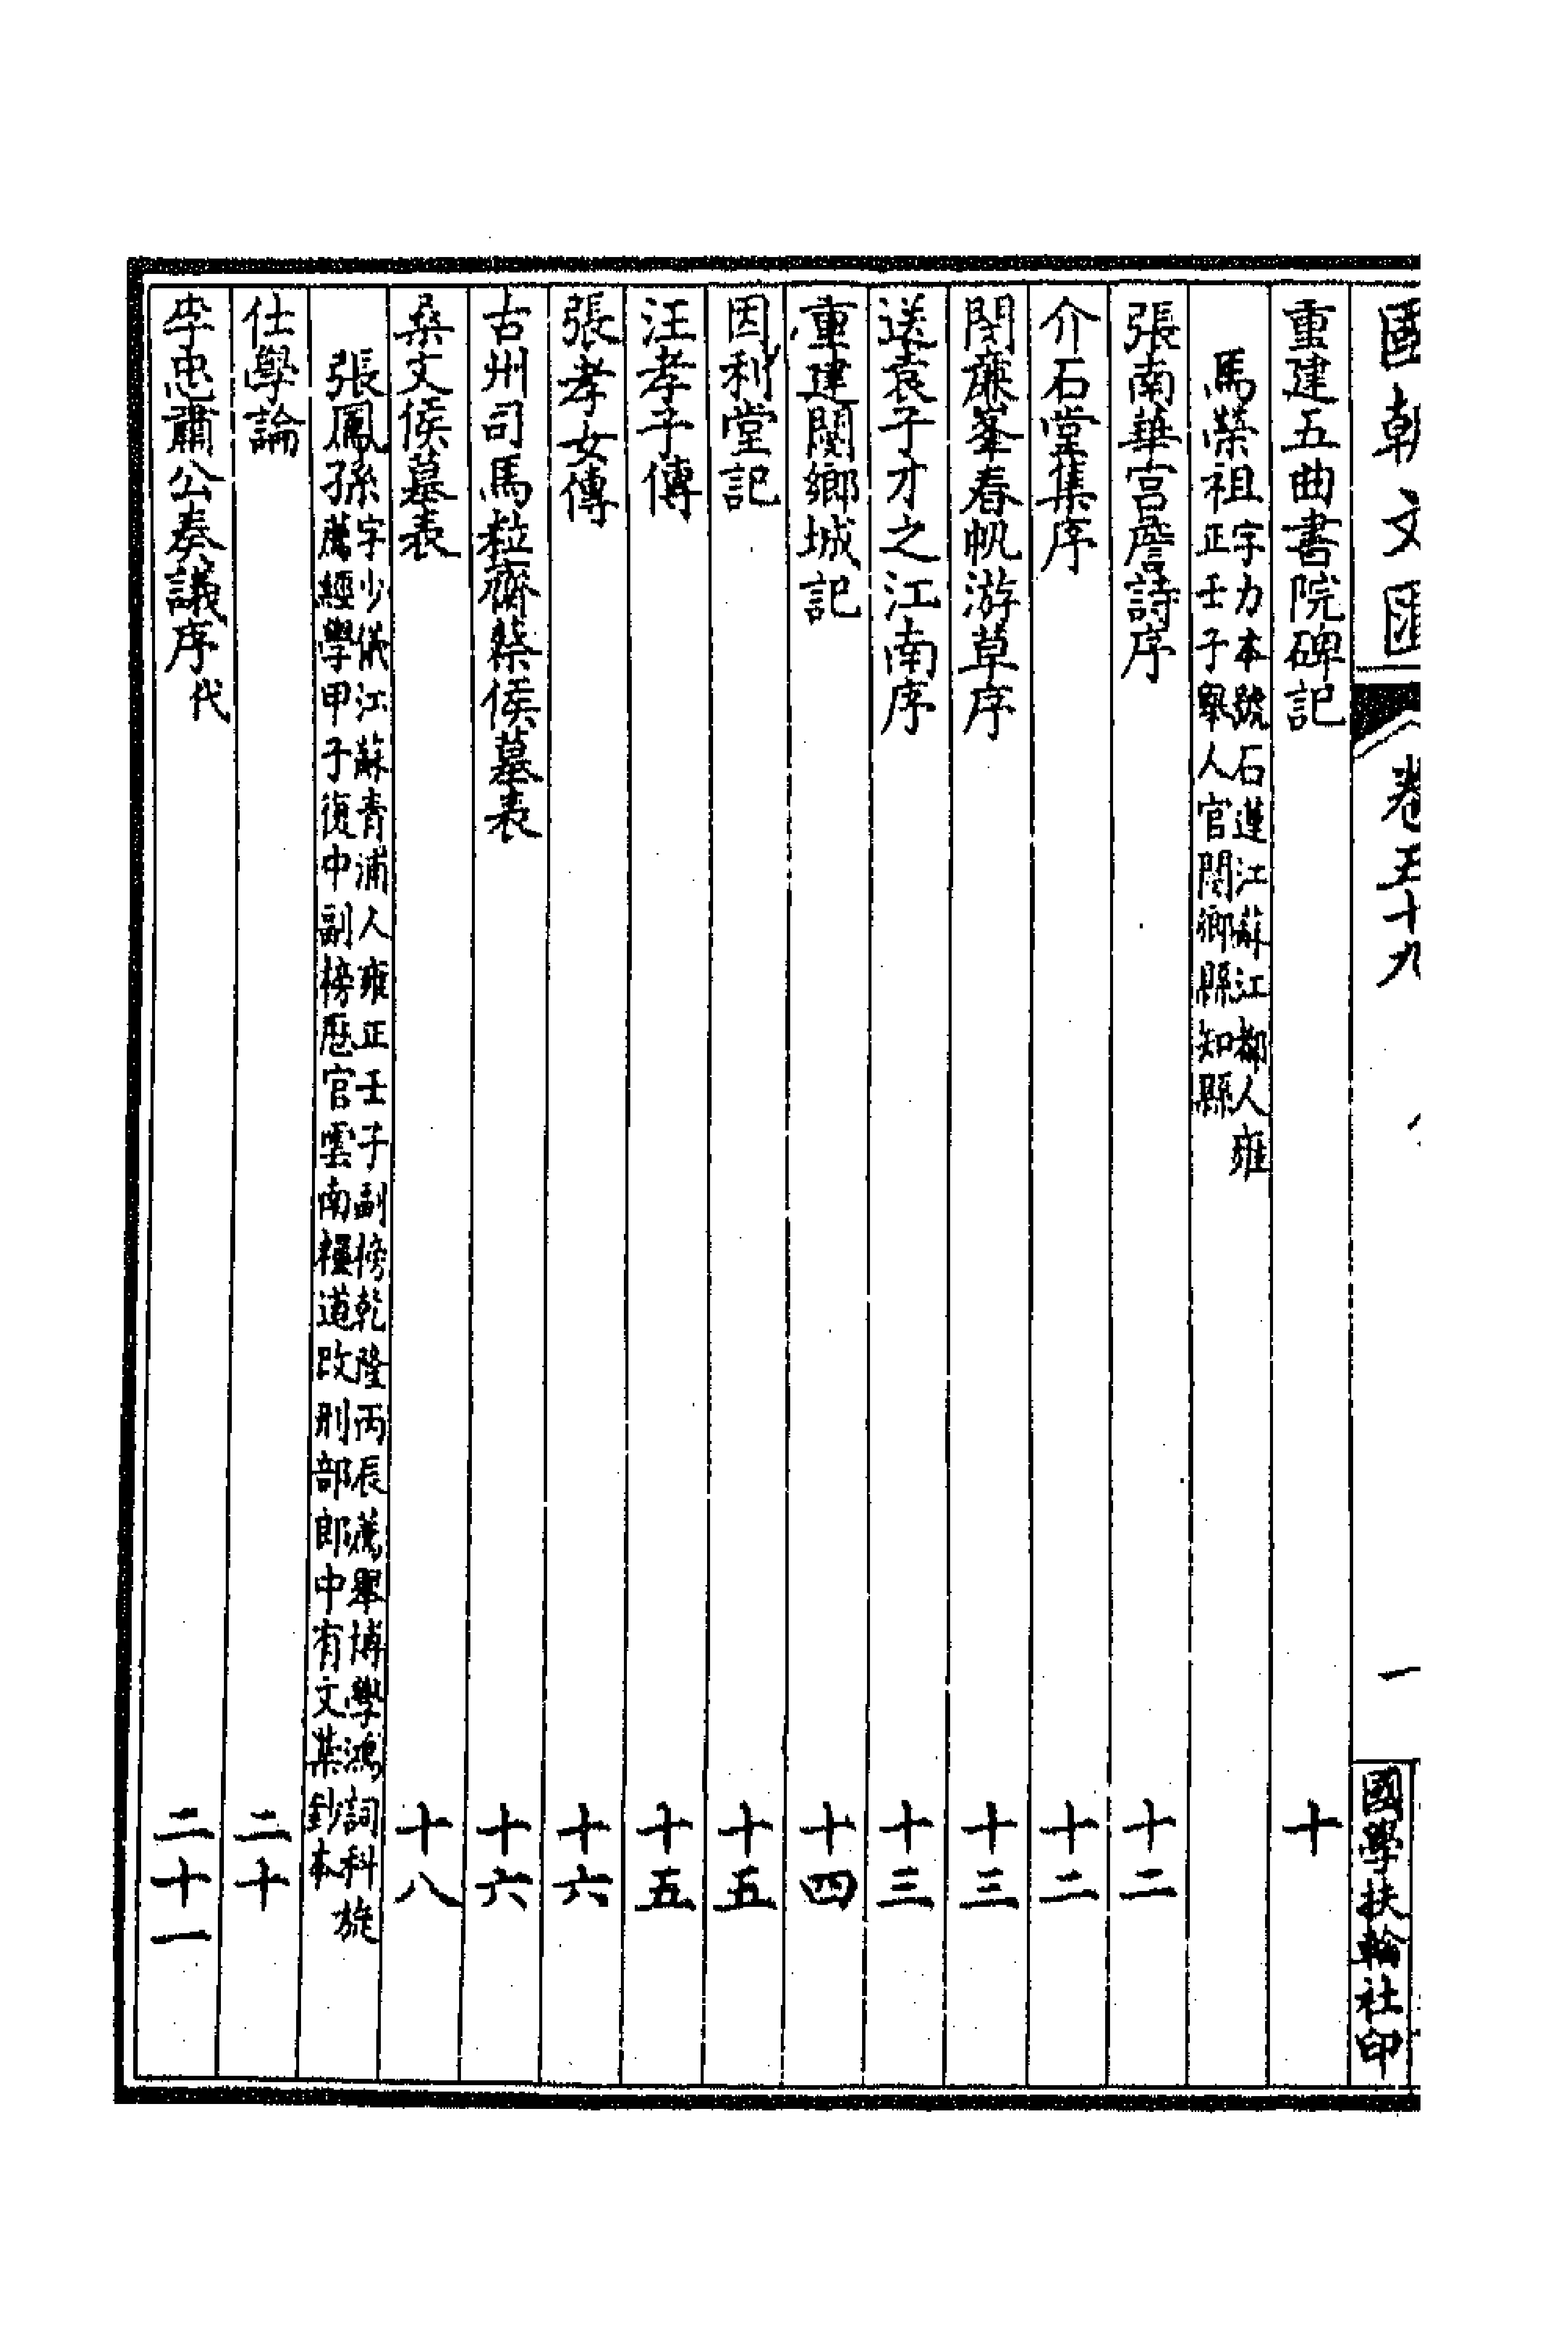 國朝文匯 卷五十九 一 國學扶輪社印
重建五曲書院碑記 十
馬榮祖 字力本號石蓮江蘇江都人雍
正壬子舉人官閿鄉縣知縣
張南華宮詹詩序 十二
介石堂集序 十二
閔廉峯春帆游草序 十三
送袁子才之江南序 十三
重建閿鄉城記 十四
因利堂記 十五
汪孝子傳 十五
張孝女傳 十六
古州司馬粒齋蔡侯墓表 十六
桑文侯墓表 十八
張鳳孫 字少儀江蘇青浦人雍正壬子副榜乾隆丙辰薦舉博學鴻詞科旋
薦經學甲子復中副榜歷官雲南糧道改刑部郎中有文集鈔本
仕學論 二十
李忠肅公奏議序 代 二十一